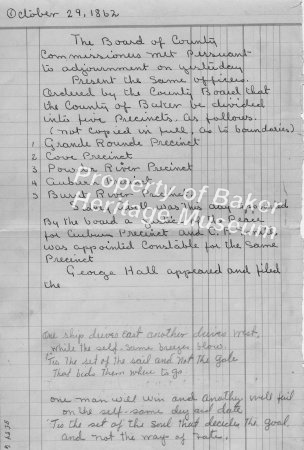 October 29, 1862
The Board of County
Commissioners met Persuant
to adjournment on yesterday
Present the Same officers.
Ordered by the County Board that
the County of Baker be divided
into five Precincts. As follows.
(not Copied in full, as to boundaries)
1 Grande Rounde Precinct
2 Cove Precinct
3 Powder River Precinct
4 Auburn Precinct
5 Burnt River Precinct
Hall was this day
By the board a Justice of the Peace
for Auburn Precinct and
was appointed Constable for the Same
Precinct
George Hall appeared and filed
the
Property of Baker
Heritage Museum
One ship drives East another drives West,
While the self-same breezes blow,
'Tis the set of the sail and Not the Gale
That bids them where to go.
one man will win and another will fail
on the self-same day and date
'Tis the set of the soul that decides the goal,
and not the ways of Fate.